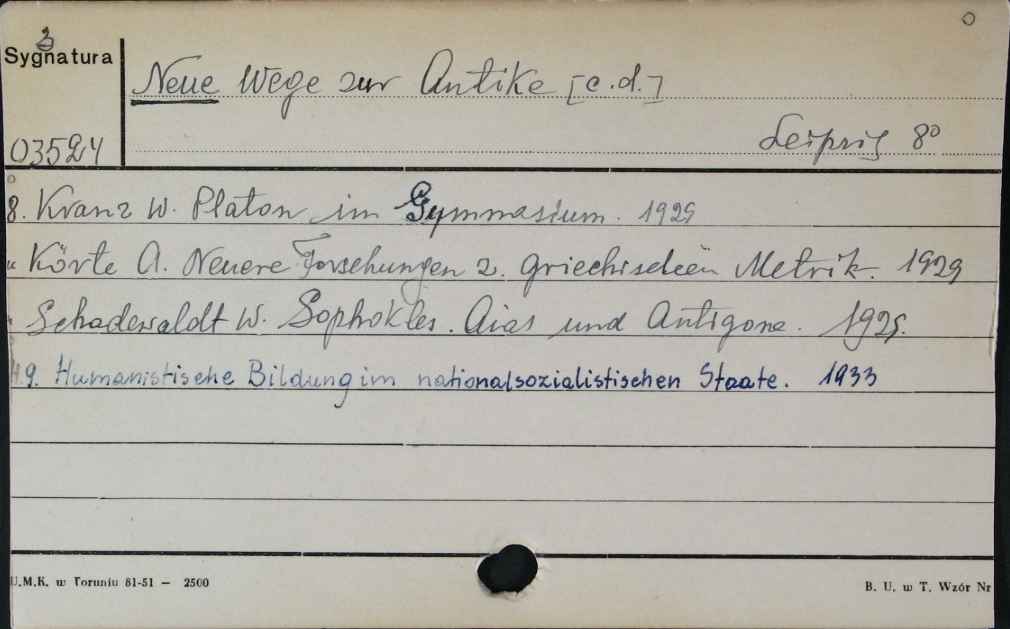 2
Sygnatura
Neue Wege zur Antike [c.d.]
03524
Leipzig 8°
8. Kranz W. Platon im Gymnasium. 1929
" Körte A. Neuere Forschungen z. griechischen Metrik. 1929
" Schadewaldt W. Sophokles. Aias und Antigone. 1929.
H.9. Humanistische Bildung im nationalsozialistischen Staate. 1933
U.M.K. w Toruniu 81-51 — 2500
B. U. w T. Wzór Nr